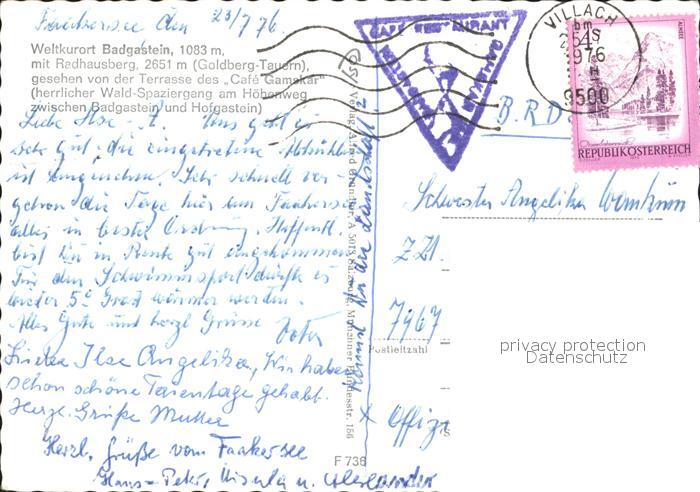 23/7 76.
Weltkurort Badgastein, 1083 m,
mit Radhausberg, 2651 m (Goldberg-Tauern),
gesehen von der Terrasse des „Café Gamskar"
(herrlicher Wald-Spaziergang am Höhenweg
zwischen Badgastein und Hofgastein)
Liebe Ilse - A. Uns geht es
sehr gut, die eingetretene
ist angenehm. Sehr schnell ver-
gehen die Tage hier am Faakersee
alles in bester Ordnung. Hoffentl.
bist Du in gut angekommen
Für den Schwimmsport dürfte es
wieder 5° Grad wärmer werden.
Alles Gute und herzl Grüsse Vater
Liebe Ilse Angelika, Wir haben
schon schöne Ferientage gehabt.
Herzl. Grüße Mutter
Herzl. Grüße vom Faakersee
Hans-Peter, Ursula u. Alexander
F 736
CAFE RESTAURANT
GAMSKAR
BADGASTEIN
VILLACH
1976
9500
REPUBLIK ÖSTERREICH
B.R.D.
Schwester Angelika
z.Zt.
7967
Postleitzahl
privacy protection
Datenschutz